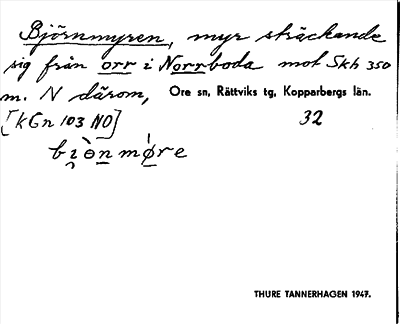 Björnmyren, myr sträckande
sig från orr i Norrboda mot Skh 350
m. N därom, Ore sn, Rättviks tg, Kopparbergs län.
[kGn 103 NO] 32
biönmøre
THURE TANNERHAGEN 1947.